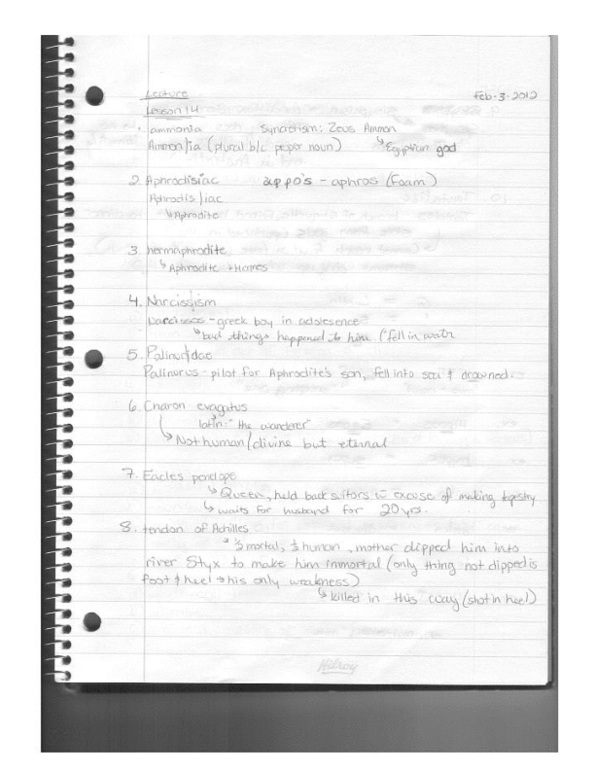 Lecture Feb. 3. 2012
Lesson 14
1. ammonia Syncretism: Zeus Ammon
Ammon/ia (plural b/c proper noun) ↳ Egyptian god
2. Aphrodisiac - aphros (foam)
Aphrodis/iac
↳ Aphrodite
3. hermaphrodite
↳ Aphrodite + Hermes
4. Narcissism
Narcissus - greek boy in adolesence
↳ bad things happened to him (fell in water
5. Palinuridae
Palinurus - pilot for Aphrodite's son, fell into sea & drowned.
6. Charon evagatus
latin: "the wanderer"
↳ Not human/divine but eternal
7. Eacles penelope
↳ Queen, held back suitors excuse of making tapestry
↳ waits for husband for 20 yrs.
8. tendon of Achilles
½ mortal, ½ human, mother dipped him into
river Styx to make him immortal (only thing not dipped is
foot & heel → his only weakness)
↳ killed in this way (shot in heel)
Hilroy